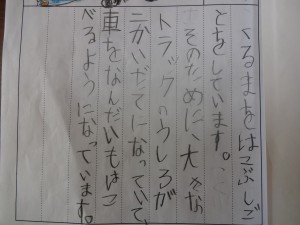 くるまをはこぶしご
とをしています。
そのために、大きな
トラックのうしろが
二かいだてになっていて、
車をなんだいもはこ
べるようになっています。